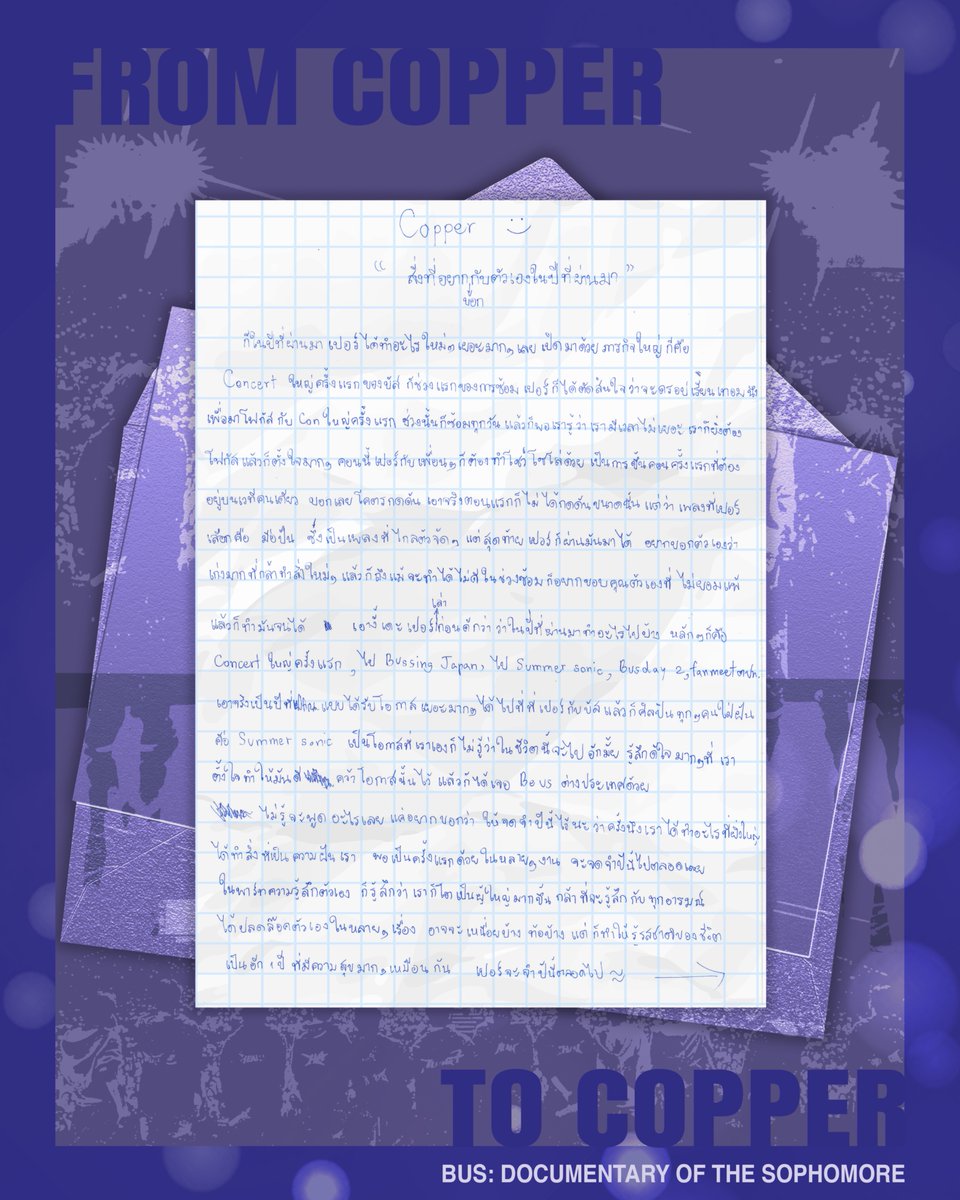 FROM COPPER
Copper
“ สิ่งที่อยากกับตัวเองในปีที่ผ่านมา ”
บอก
ก็ในปีที่ผ่านมา เปอร์ ได้ทำอะไร ใหม่ๆ เยอะมากๆ เลย เปิดมาด้วย ภารกิจใหญ่ ก็คือ
Concert ใหญ่ครั้งแรกของบัส ก็ช่วงแรกของการซ้อม เปอร์ก็ได้ตัดสินใจว่าจะดรอปเรียนเทอมนึง
เพื่อมาโฟกัสกับ Con ใหญ่ครั้งแรก ช่วงนั้นก็ซ้อมทุกวัน แล้วก็พอเรารู้ว่าเรามีเวลาไม่เยอะ เราก็ยิ่งต้อง
โฟกัส แล้วก็ตั้งใจมากๆ คอนนี้เปอร์กับเพื่อนๆ ก็ต้องทำโชว์ โซโล่ด้วย เป็นการขึ้นคอนครั้งแรกที่ต้อง
อยู่บนเวทีคนเดียว บอกเลยโคตรกดดัน เอาจริงตอนแรกก็ไม่ได้กดดันขนาดนั้น แต่ว่า เพลงที่เปอร์
เลือกคือ มือปืน ซึ่งเป็นเพลงที่ไกลตัวจัดๆ แต่สุดท้ายเปอร์ก็ผ่านมันมาได้ อยากบอกตัวเองว่า
เก่งมากที่กล้าทำสิ่งใหม่ๆ แล้วก็ถึงแม้จะทำได้ไม่ดีในช่วงซ้อม ก็อยากขอบคุณตัวเองที่ ไม่ยอมแพ้
เล่า
แล้วก็ทำมันจนได้ เอางี้เดะเปอร์ก่อนดีกว่า ว่าในปีที่ผ่านมาทำอะไรไปบ้าง หลักๆก็คือ
Concert ใหญ่ครั้งแรก , ไป Bussing Japan, ไป Summer sonic, Busday 2, fanmeet
เอาจริงเป็นปีที่ แบบได้รับโอกาสเยอะมากๆ ได้ไปที่ที่เปอร์กับบัส แล้วก็ศิลปินทุกๆคนใฝ่ฝัน
คือ Summer sonic เป็นโอกาสที่เราเองก็ไม่รู้ว่าในชีวิตนี้จะไปอีกมั้ย รู้สึกดีใจมากๆที่เรา
ตั้งใจทำให้มันดี คว้าโอกาสนั้นไว้ แล้วก็ได้เจอ Beus ต่างประเทศด้วย
ไม่รู้จะพูดอะไรเลย แค่อยากบอกว่า ให้จดจำปีนี้ไว้นะ ว่าครั้งนึงเราได้ทำอะไรที่ยิ่งใหญ่
ได้ทำสิ่งที่เป็นความฝันเรา พอเป็นครั้งแรกด้วยในหลายๆงาน จะจดจำปีนี้ไปตลอดเลย
ในพาร์ทความรู้สึกตัวเอง ก็รู้สึกว่า เราก็โตเป็นผู้ใหญ่มากขึ้น กล้าที่จะรู้สึกกับทุกอารมณ์
ได้ปลดล็อคตัวเองในหลายๆเรื่อง อาจจะเหนื่อยบ้าง ท้อบ้าง แต่ก็ทำให้รู้รสชาติของชีวิต
เป็นอีก 1 ปี ที่มีความสุขมากๆเหมือนกัน เปอร์จะจำปีนี้ตลอดไป ~
TO COPPER
BUS: DOCUMENTARY OF THE SOPHOMORE